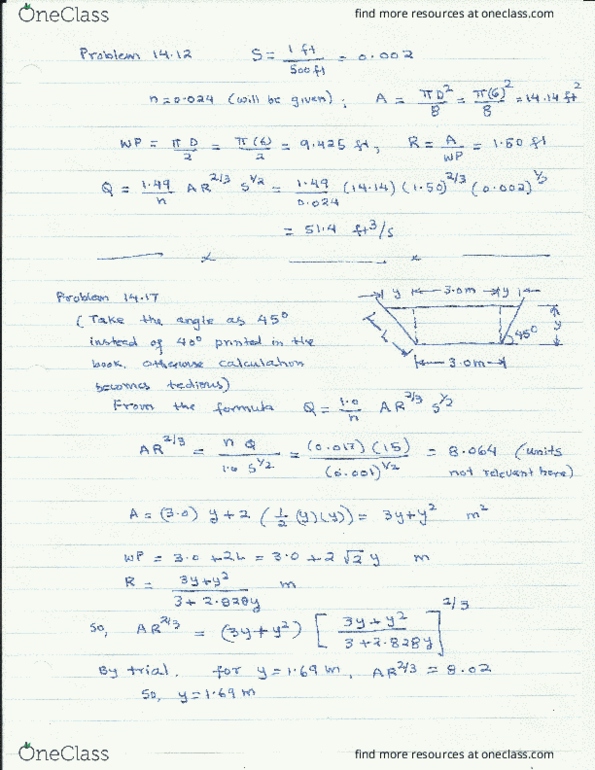 OneClass find more resources at oneclass.com
Problem 14.12 S = 1 ft / 500 ft = 0.002
n = 0.024 (will be given); A = πD²/8 = π(6)²/8 = 14.14 ft²
WP = πD/2 = π(6)/2 = 9.425 ft, R = A/WP = 1.50 ft
Q = 1.49/n AR^2/3 S^1/2 = 1.49/0.024 (14.14) (1.50)^2/3 (0.002)^1/2
= 51.4 ft³/s
x x
Problem 14.17
(Take the angle as 45°
instead of 40° printed in the
book. otherwise calculation
becomes tedious)
y 3.0m y
L 45° y
3.0m
From the formula Q = 1.0/n AR^2/3 S^1/2
AR^2/3 = n Q / 1.0 S^1/2 = (0.017) (15) / (0.001)^1/2 = 8.064 (units
not relevant here)
A = (3.0) y + 2 (1/2 (y)(y)) = 3y + y² m²
WP = 3.0 + 2L = 3.0 + 2 √2 y m
R = 3y + y² / 3 + 2.828y m
So, AR^2/3 = (3y + y²) [3y + y² / 3 + 2.828y]^2/3
By trial. for y = 1.69 m, AR^2/3 = 8.02
So, y = 1.69 m
OneClass find more resources at oneclass.com